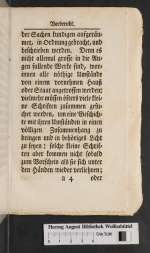 Vorbericht.
der Sachen kundigen aufgeräu-
met, in Ordnung gebracht, und
beschrieben werden. Denn es
nicht allemal grosse in die Au-
gen fallende Werke sind, wor-
innen alle nöthige Umstände
von einem vornehmen Hauß
oder Staat angetroffen werden:
vielmehr müssen öfters viele klei-
ne Schriften zusammen gesu-
chet werden, um eine Geschich-
te mit ihren Umständen in einen
völligen Zusammenhang zu
bringen und in behöriges Licht
zu setzen; solche kleine Schrif-
ten aber kommen nicht sobald
zum Vorschein als sie sich unter
den Händen wieder verliehren;
a 4 oder
Herzog August Bibliothek Wolfenbüttel